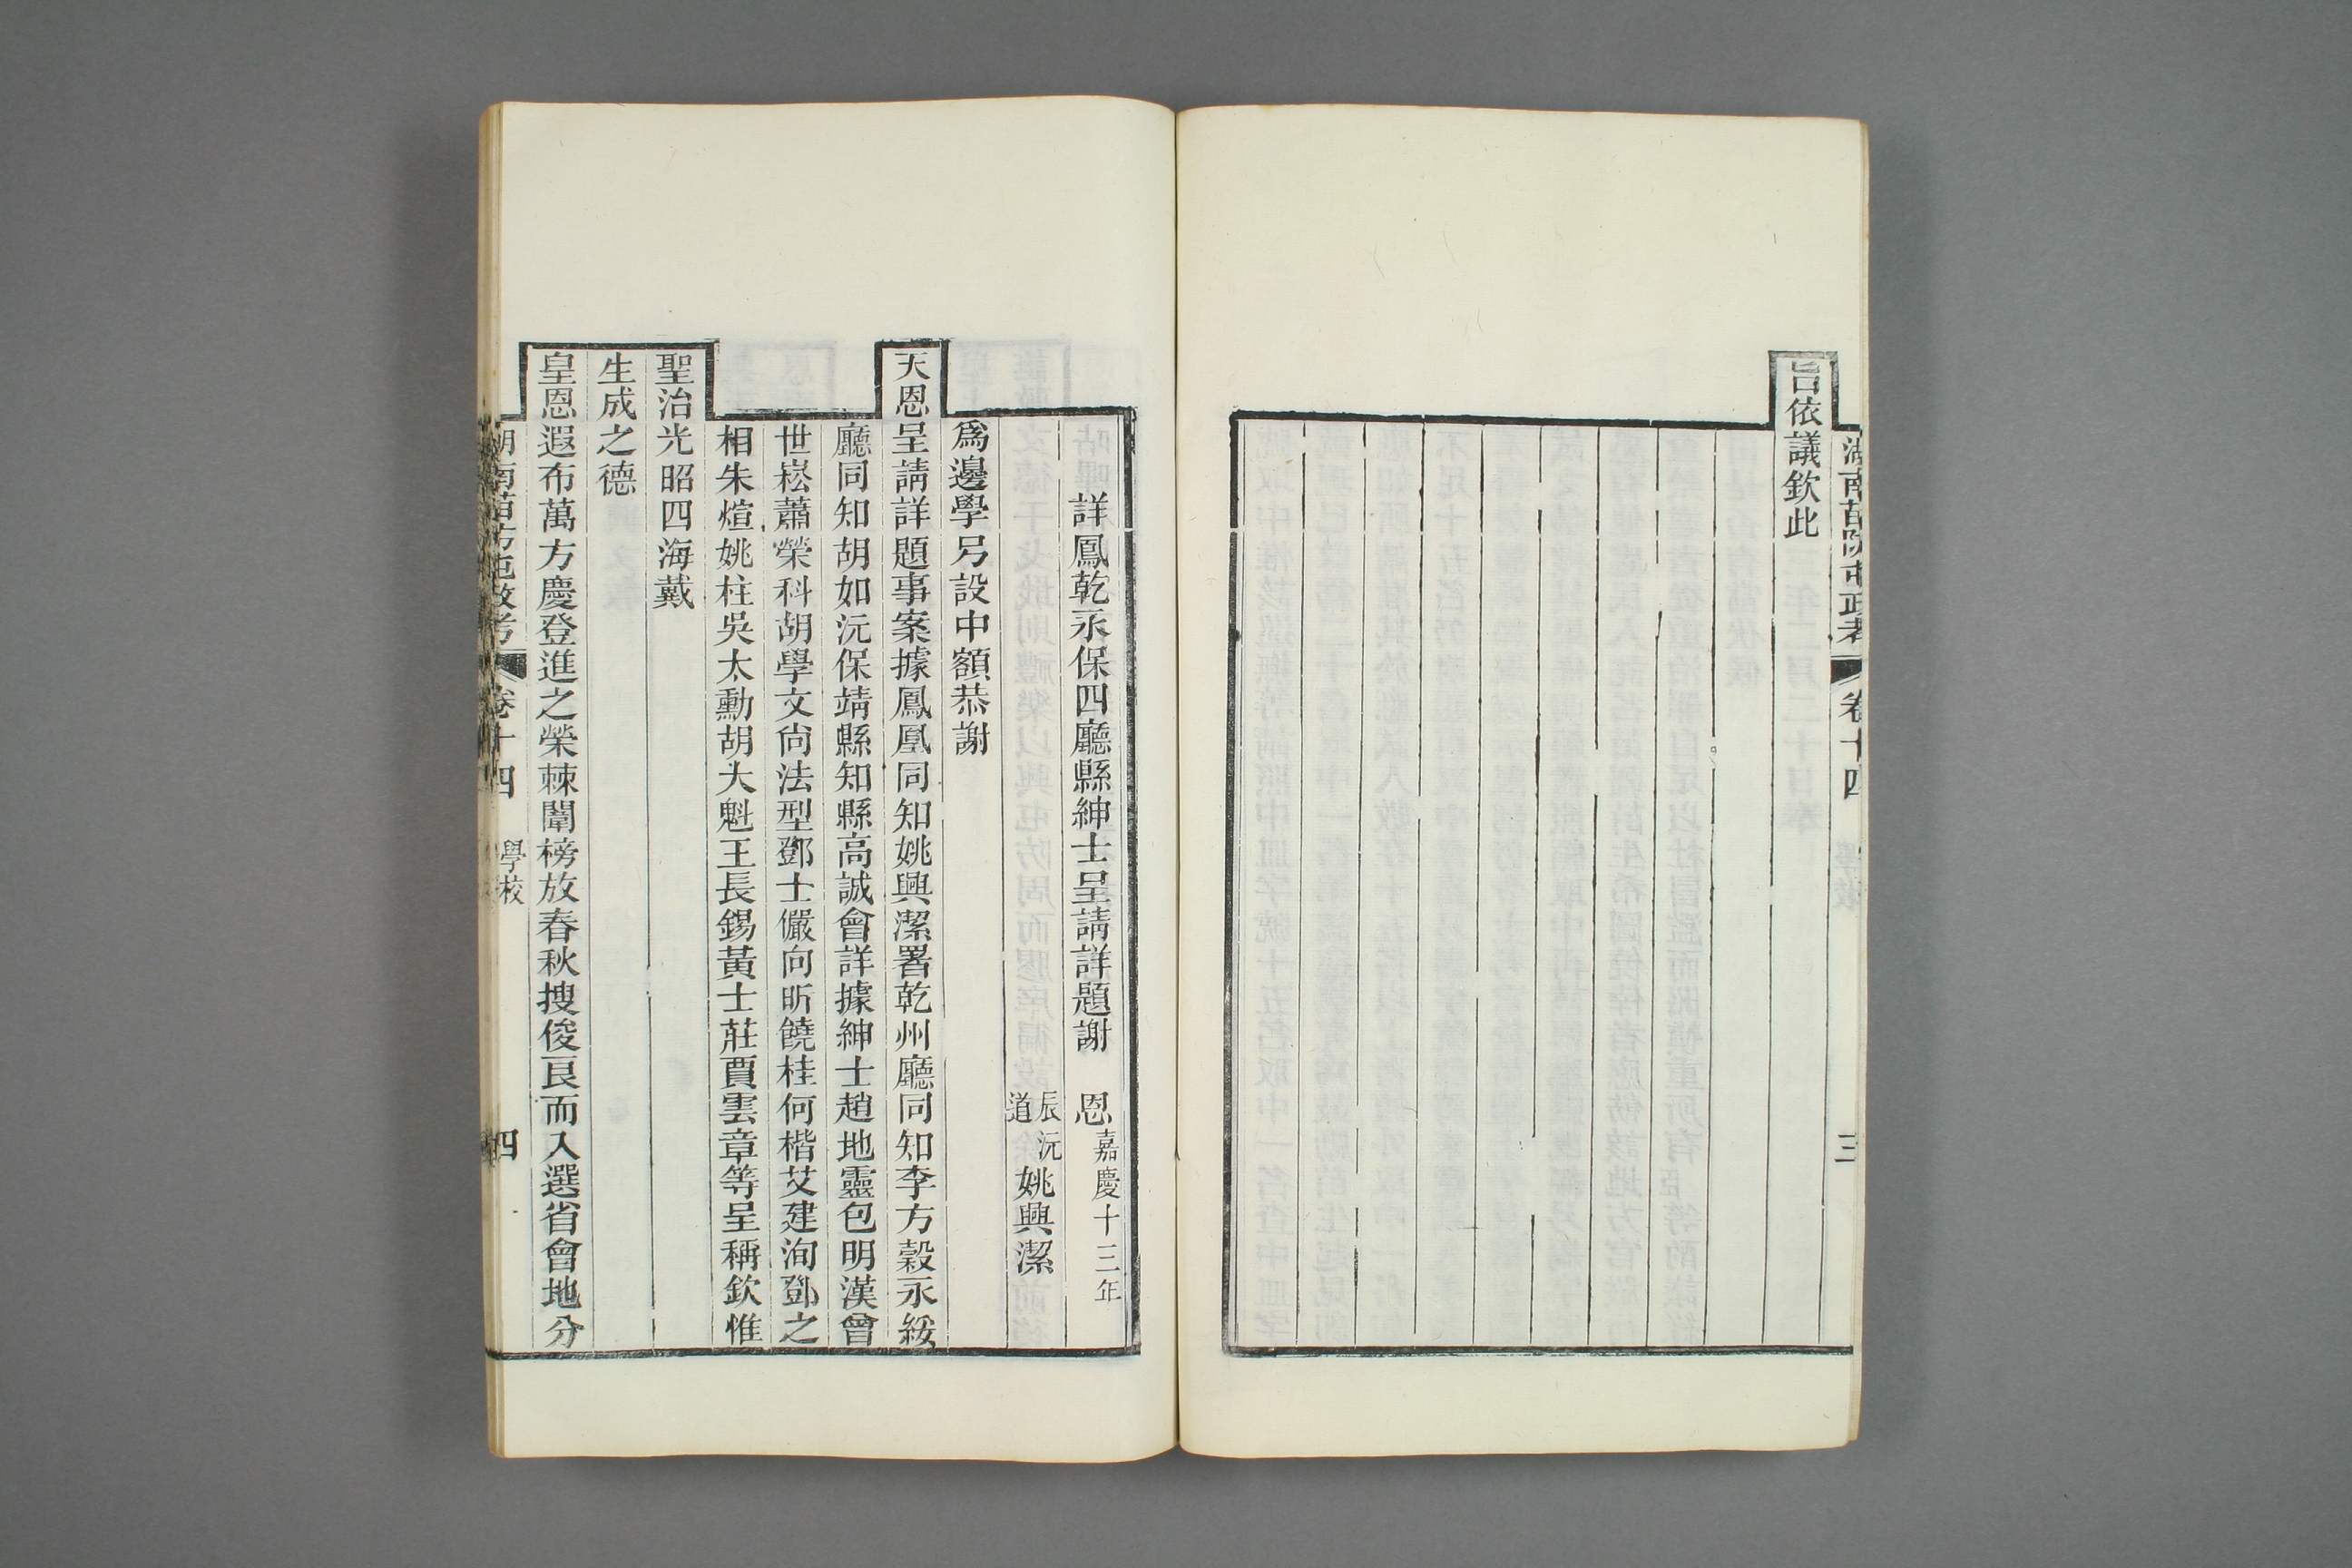 湖南苗防屯政考 卷十四 學校 三
旨依議欽此
詳鳳乾永保四廳縣紳士呈請詳題謝 恩 嘉慶十三年
辰沅道 姚興潔
為邊學另設中額恭謝
天恩呈請詳題事案據鳳凰同知姚興潔署乾州廳同知李方穀永綏
廳同知胡如沅保靖縣知縣高誠會詳據紳士趙地靈包明漢曾
世崧蕭榮科胡學文尙法型鄧士儼向昕饒桂何楷艾建洵鄧之
相朱煊姚柱吳太勳胡大魁王長錫黃士莊賈雲章等呈稱欽惟
聖治光昭四海戴
生成之德
皇恩遐布萬方慶登進之榮棘闈榜放春秋搜俊艮而入選省會地分
湖南苗防屯政考 卷十四 學校 四